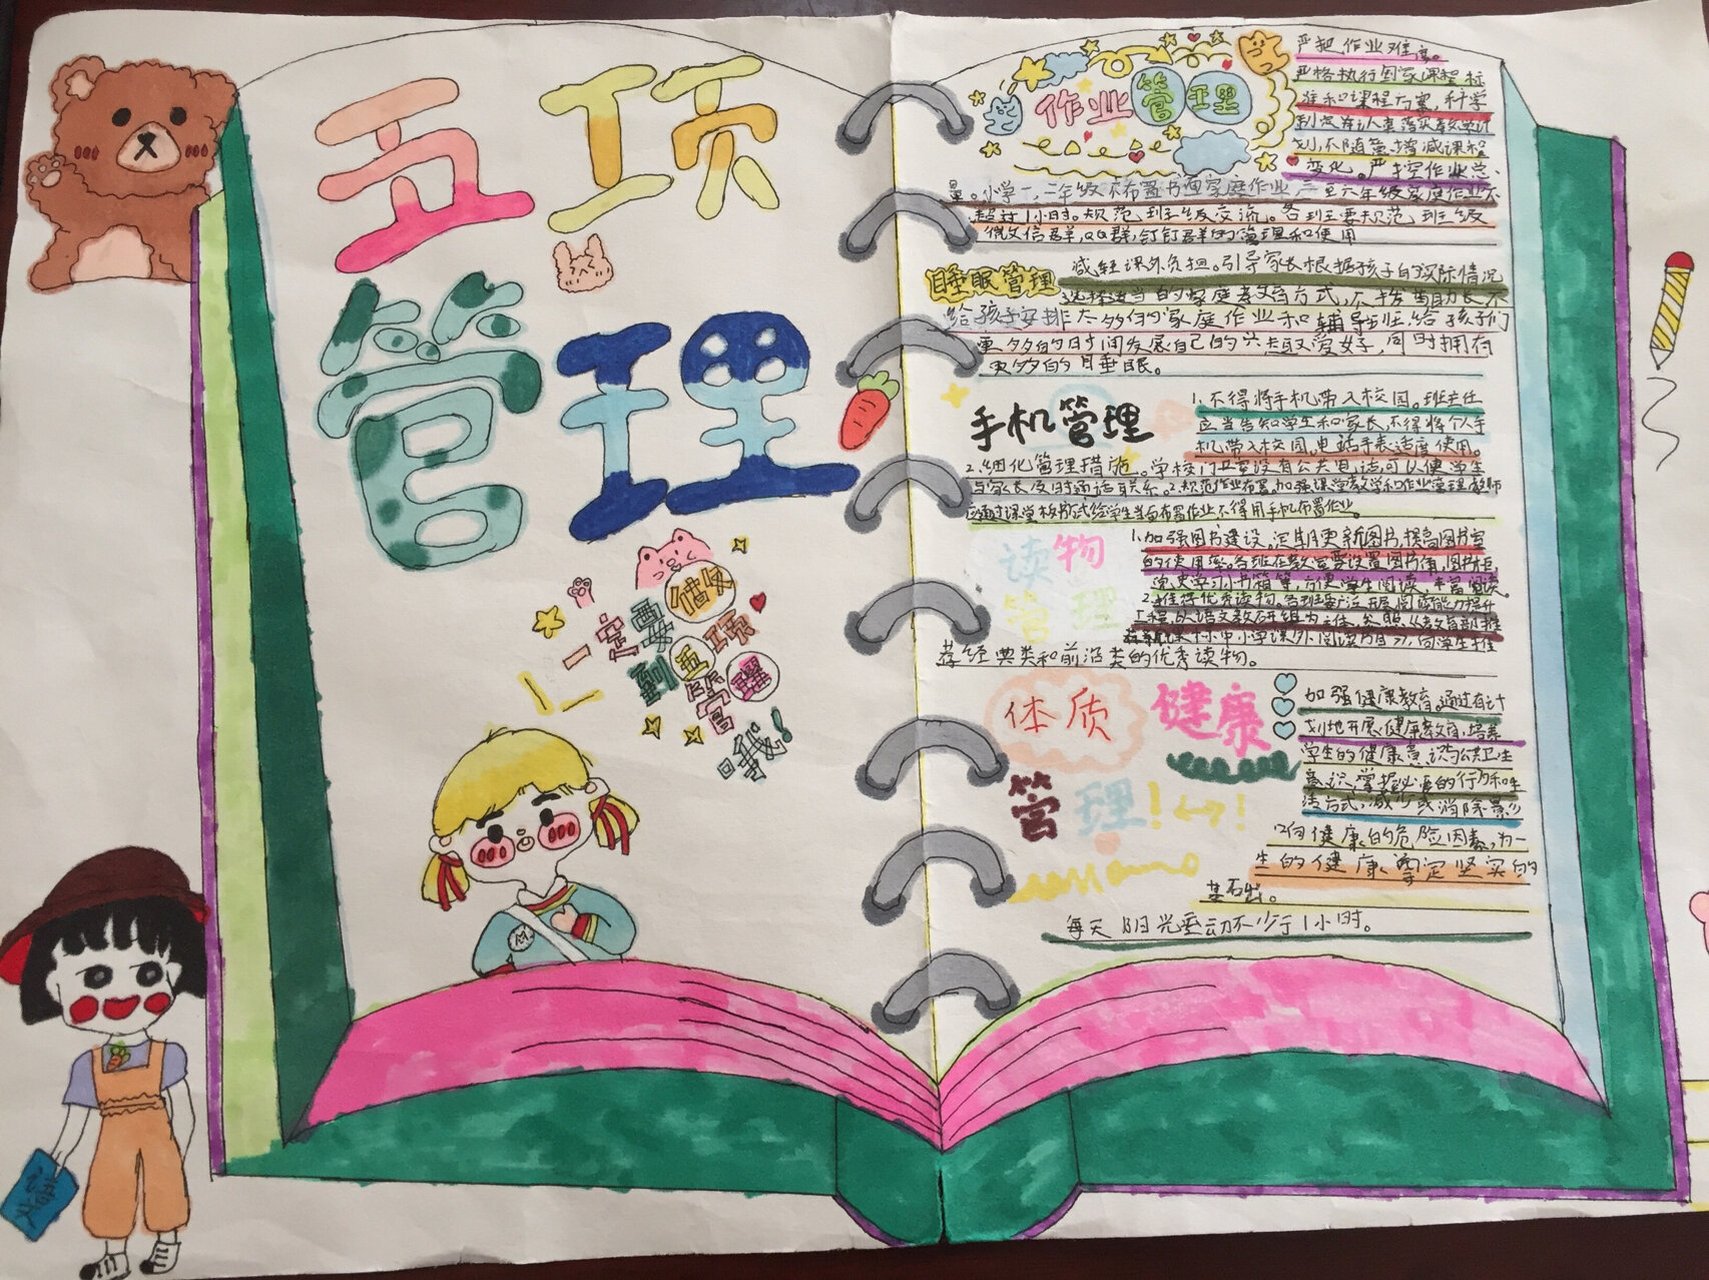 五项
管理
一定要做
到五项
管理
哦!
作业管理
严把作业难度。
严格执行国家课程标
准和课程方案,科学
划,不随意增减课程
变化。严控作业总
量。小学一、二年级不布置书面家庭作业 三至六年级家庭作业不
超过1小时。规范班级交流。各班主要规范班级
微文信群,QQ群,钉钉群的管理和使用
睡眠管理
减轻课外负担。引导家长根据孩子的实际情况
选择适当的家庭教育方式,不拔苗助长不
给孩子安排太多的家庭作业和辅导班,给孩子们
更多的时间发展自己的兴趣爱好,同时拥有
更多的睡眠。
手机管理
1.不得将手机带入校园。班主任
应当告知学生和家长,不得将个人手
机带入校园,电话手表适度使用。
2.细化管理措施。学校门卫室设有公共电话,可以便学生
与家长及时通话联系。2.规范作业布置,加强课堂教学和作业管理,教师
应通过课堂板书式给学生当面布置作业不得用手机布置作业。
读物
管理
1.加强图书建设。定期更新图书,提高图书室
的使用率。各班在教室要设置图书角,图书柜,
荐经典类和前沿类的优秀读物。
体质
健康
管理!
加强健康教育,通过有计
划地开展健康教育,培养
学生的健康意识与公共卫生
意识,掌握必要的行为和生
活方式,减少或消除影
响健康的危险因素,为一
生的健康奠定坚实的
基石出。
每天阳光运动不少于1小时。